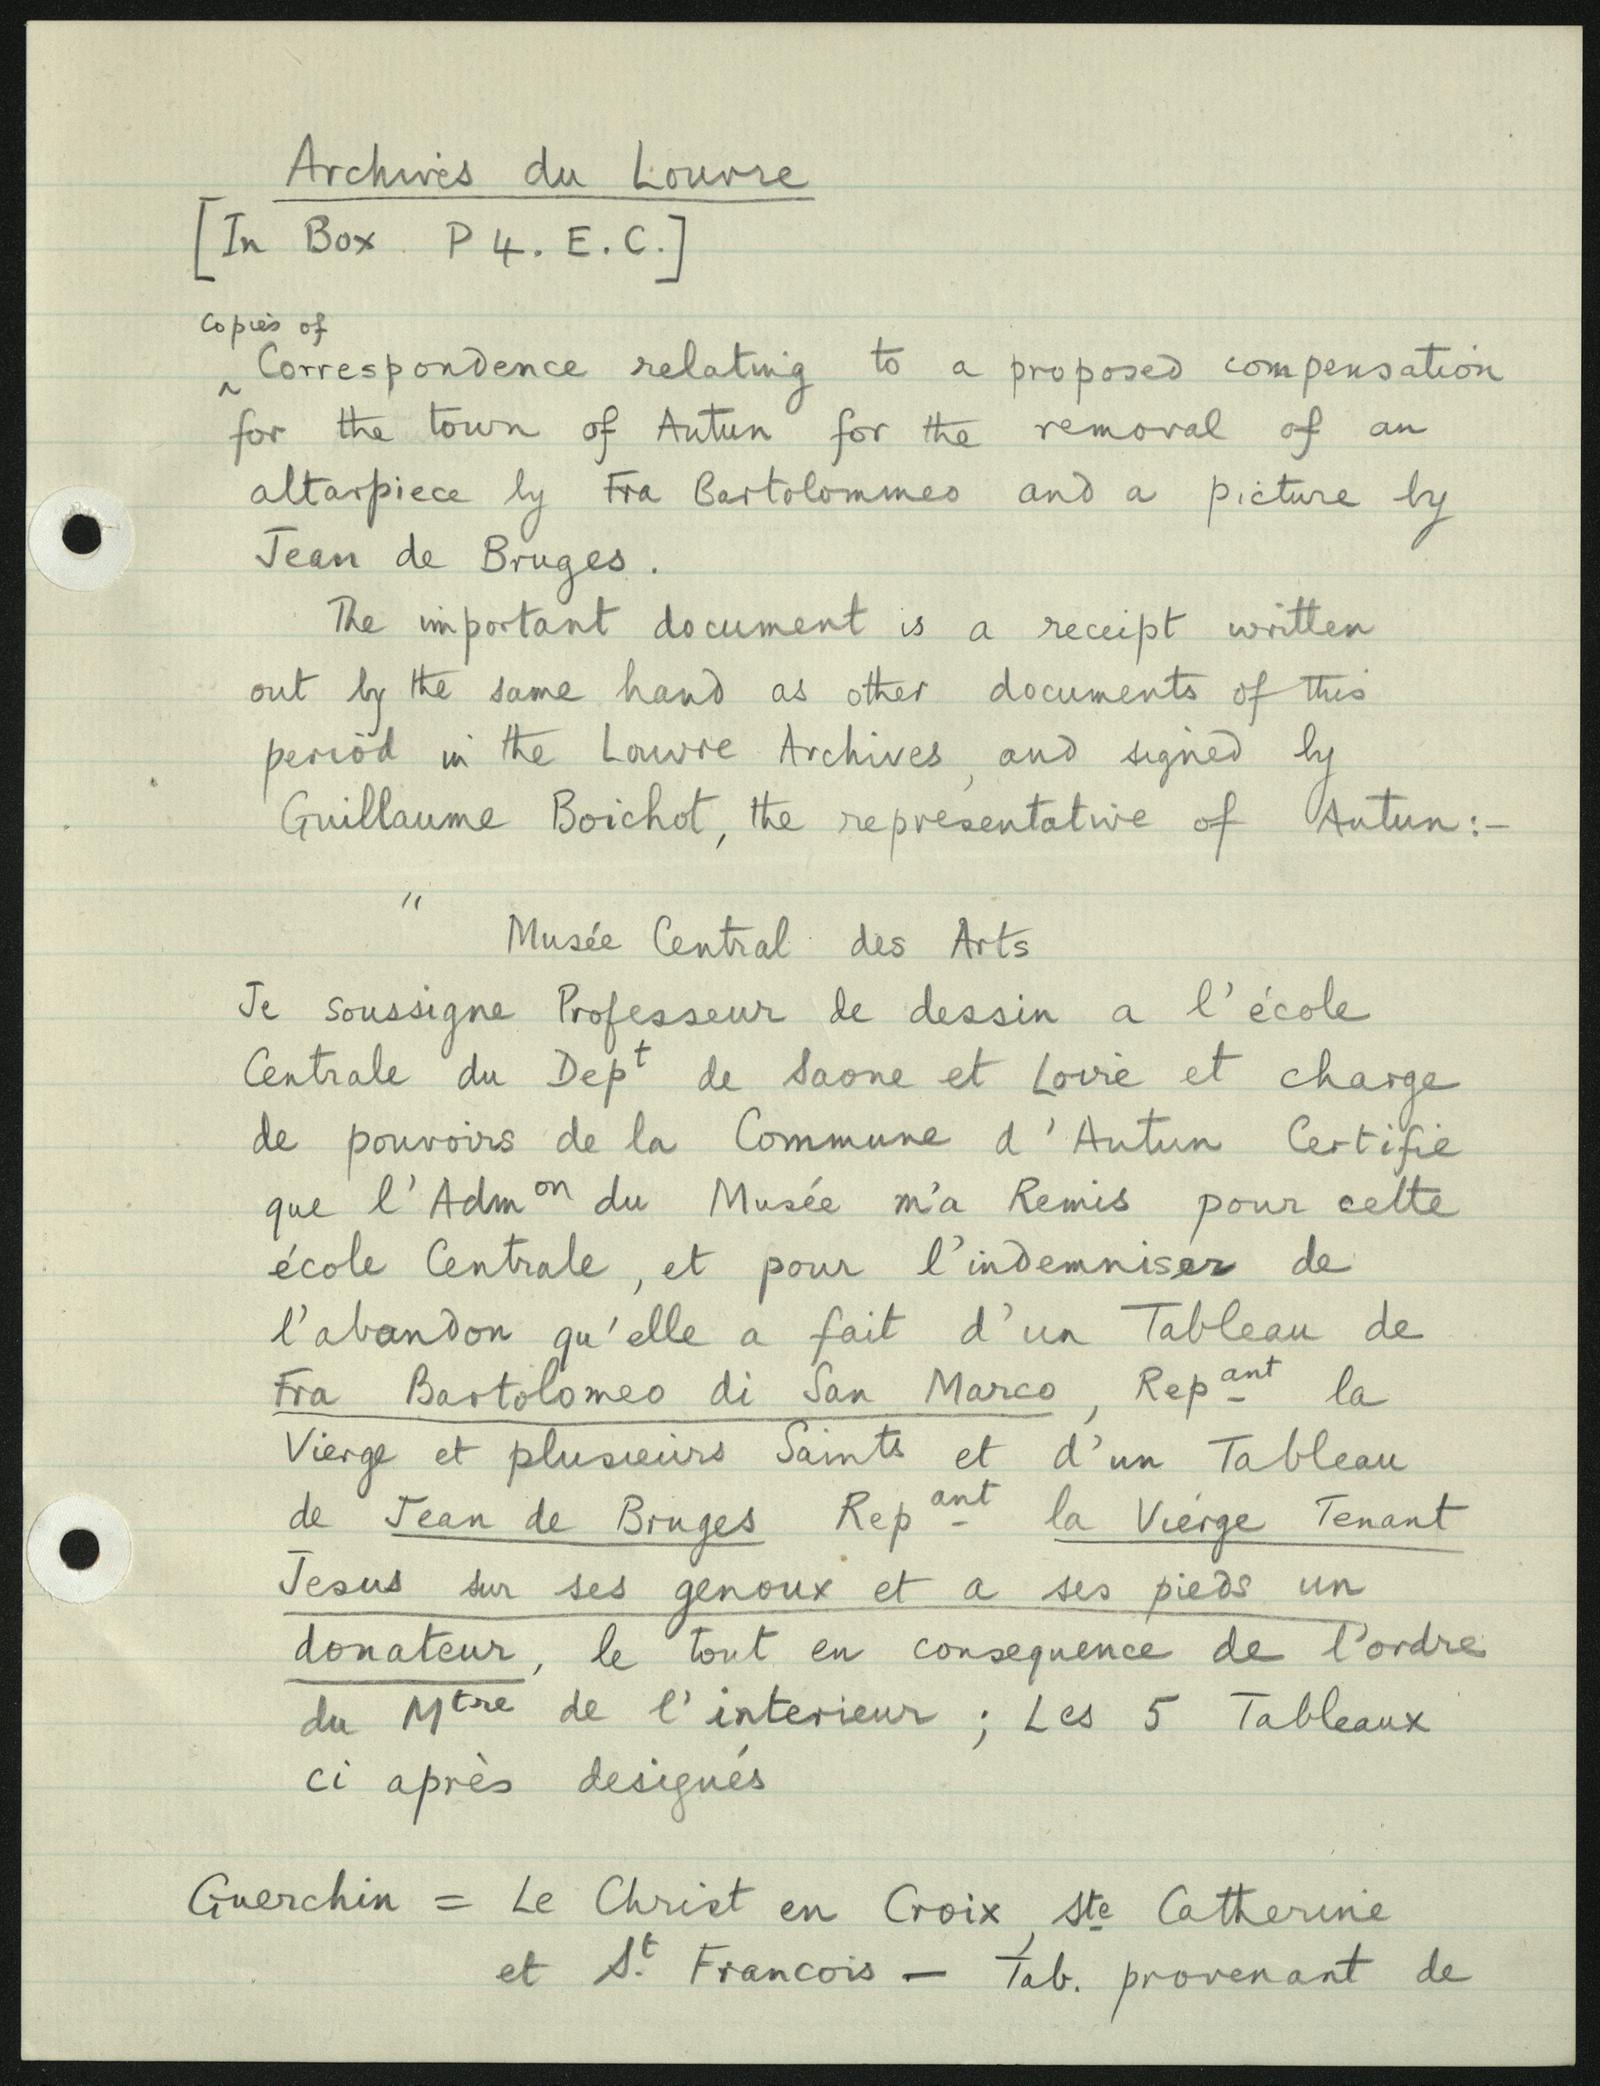 Archives du Louvre
[In Box P 4. E. C.]
copies of
^ Correspondence relating to a proposed compensation
for the town of Autun for the removal of an
altarpiece by Fra Bartolommeo and a picture by
Jean de Bruges.
The important document is a receipt written
out by the same hand as other documents of this
period in the Louvre Archives, and signed by
Guillaume Boichot, the representative of Autun:-
"
Musée Central des Arts
Je soussigne Professeur de dessin a l'école
Centrale du Dept de Saone et Loire et charge
de pouvoirs de la Commune d'Autun Certifie
que l'Admon du Musée m'a Remis pour cette
école Centrale, et pour l'indemniser de
l'abandon qu'elle a fait d'un Tableau de
Fra Bartolomeo di San Marco, Repant la
Vierge et plusieurs Saints et d'un Tableau
de Jean de Bruges Repant la Vierge Tenant
Jesus sur ses genoux et a ses pieds un
donateur, le tout en consequence de l'ordre
du Mtre de l'interieur; Les 5 Tableaux
ci après designés
Guerchin = Le Christ en Croix, Ste Catherine
et St. Francois — Tab. provenant de